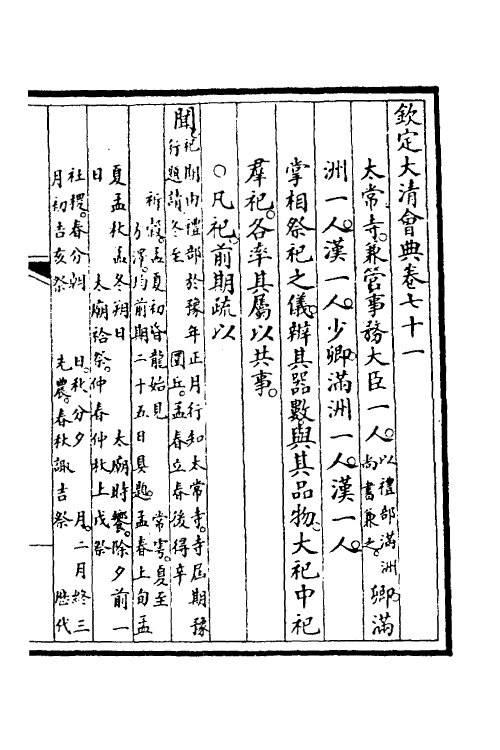 欽定大清會典卷七十一
太常寺。兼管事務大臣一人。以禮部滿洲尚書兼之。卿滿
洲一人。漢一人。少卿滿洲一人。漢一人。
掌相祭祀之儀。辨其器數。與其品物。大祀中祀
羣祀。各率其屬以共事。
○凡祀。前期疏以
聞祀期由禮部於豫年正月行知太常寺。寺屆期豫
行題請。冬至　圜丘。孟春立春後得辛
祈穀。孟夏初昏龍始見　常雩。夏至
方澤。均前期二十五日具題。孟春上旬孟
夏孟秋孟冬朔日　太廟時饗。除夕前一
日　太廟祫祭。仲春仲秋上戊祭
社稷。春分朝　日。秋分夕　月。二月終三
月初吉亥祭　先農。春秋諏吉祭　歷代